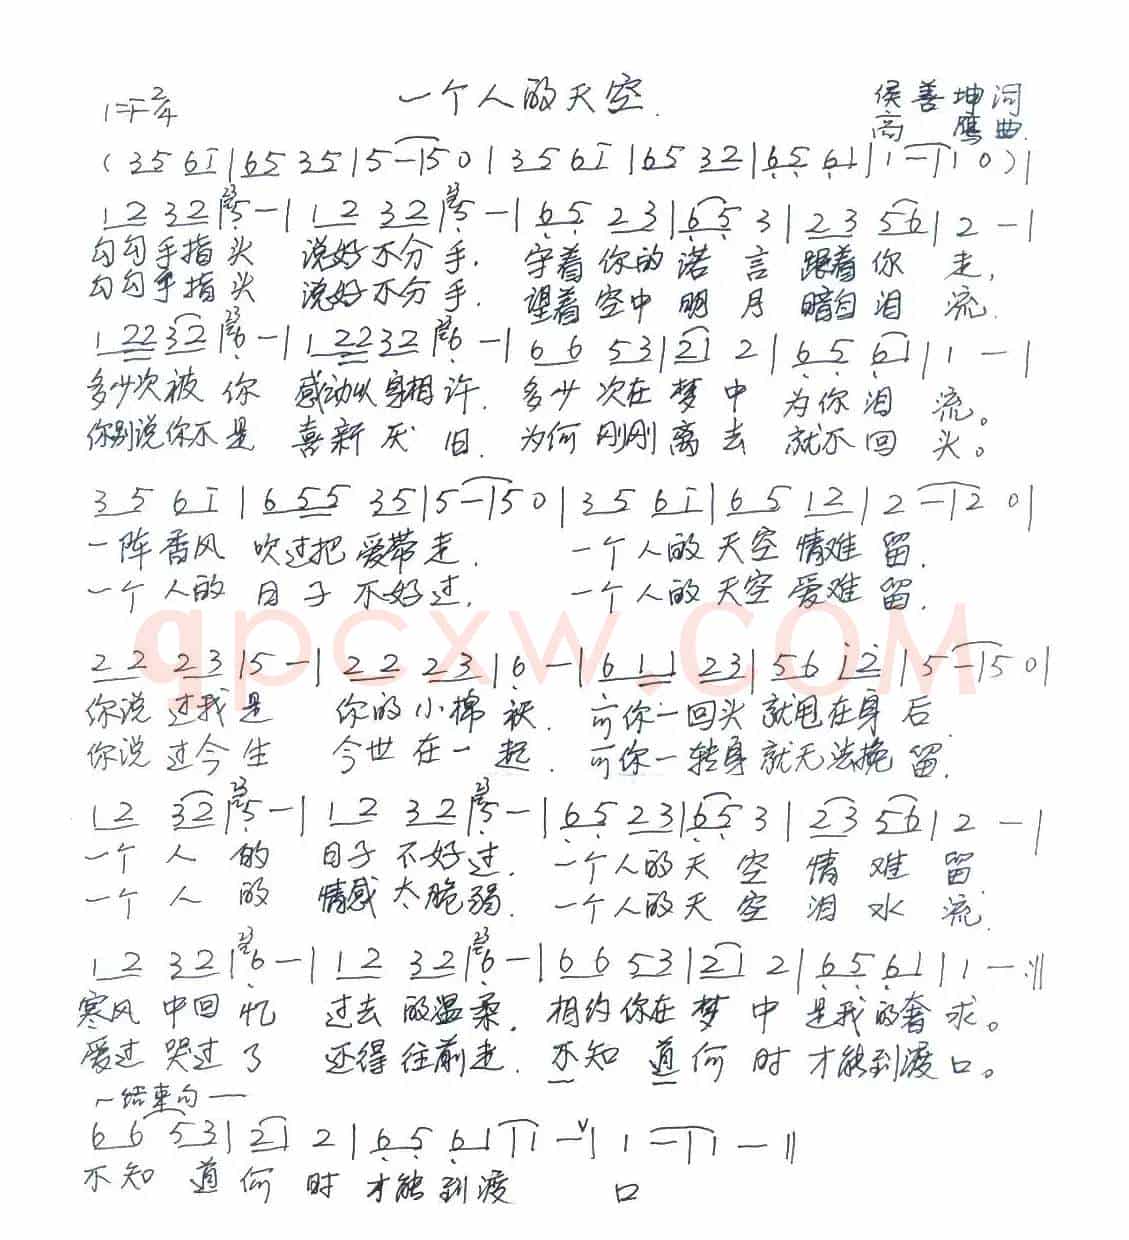 1=F 2/4 一个人的天空. 侯善坤词
高 鹰曲.
( 3 5 6 i | 6 5 3 5 | 5 — | 5 0 | 3 5 6 i | 6 5 3 2 | 6 5 6 1 | 1 — | 1 0 ) |
1 2 3 2 | 5 — | 1 2 3 2 | 5 — | 6 5 2 3 | 6 5 3 | 2 3 5 6 | 2 — |
勾勾手指头 说好不分手. 守着你的诺言 跟着你走,
勾勾手指头 说好不分手. 望着空中明月 暗自泪流.
1 2 2 3 2 | 6 — | 1 2 2 3 2 | 6 — | 6 6 5 3 | 2 1 2 | 6 5 6 1 | 1 — |
多少次被你 感动以身相许. 多少次在梦中 为你泪流。
你别说你不是 喜新厌旧. 为何刚刚离去 就不回头。
3 5 6 i | 6 5 5 3 5 | 5 — | 5 0 | 3 5 6 i | 6 5 1 2 | 2 — | 2 0 |
一阵香风 吹过把爱带走. 一个人的天空情难留.
一个人的日子不好过. 一个人的天空爱难留.
qpcxw.COM
2 2 2 3 | 5 — | 2 2 2 3 | 6 — | 6 1 1 2 3 | 5 6 i 2 | 5 — | 5 0 |
你说过我是 你的小棉袄. 可你一回头就甩在身后.
你说过今生 今世在一起. 可你一转身就无法挽留.
1 2 3 2 | 5 — | 1 2 3 2 | 5 — | 6 5 2 3 | 6 5 3 | 2 3 5 6 | 2 — |
一个人的 日子不好过. 一个人的天空情难留.
一个人的 情感太脆弱. 一个人的天空泪水流.
1 2 3 2 | 6 — | 1 2 3 2 | 6 — | 6 6 5 3 | 2 1 2 | 6 5 6 1 | 1 — :||
寒风中回忆 过去的温柔. 相约你在梦中 是我的奢求。
爱过哭过了 还得往前走. 不知道何时 才能到渡口。
~结束句—
6 6 5 3 | 2 1 2 | 6 5 6 1 | 1 — ∨ | 1 — | 1 — ||
不知道何时 才能到渡 口